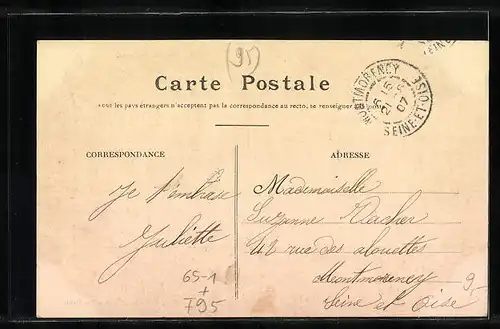 (95)
Carte Postale
Tous les pays étrangers n'acceptent pas la correspondance au recto, se renseigner à la poste
MONTMORENCY
SEINE-ET-OISE
07
CORRESPONDANCE
ADRESSE
Je t'embrasse
Juliette
Mademoiselle
Suzanne Vacher
42 rue des alouettes
Montmorency
Seine et Oise
65-1
+
795
9-